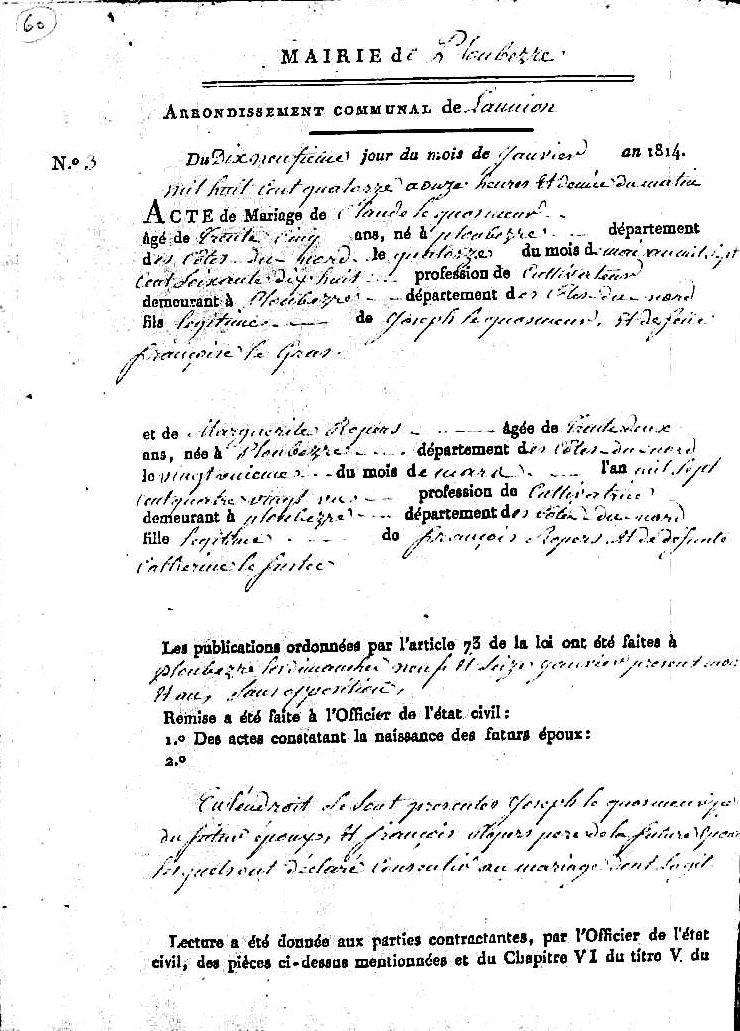 60
MAIRIE de Ploubezre
ARRONDISSEMENT COMMUNAL de Lannion
N.º 3 Du Dix neufieme jour du mois de Janvier an 1814.
mil huit cent quatorze a onze heures et demie du matin
ACTE de Mariage de Claude le quosmeur
âgé de trente cinq ans, né à ploubezre département
des Côtes du nord le quatorze du mois de mai an mil sept
Cent soixante dix huit profession de Cultivateur
demeurant à Ploubezre département des Côtes du nord
fils legitime de Joseph le quosmeur, et de feue
françoise le Gras.
et de Marguerite Ropers âgée de trente deux
ans, née à Ploubezre département des côtes du nord
le vingt unieme du mois de mars l'an mil sept
Cent quatre vingt un profession de Cultivatrice
demeurant à ploubezre département des Côtes du nord
fille legitime de françois Ropers et de defunte
Catherine le
Les publications ordonnées par l'article 73 de la loi ont été faites à
ploubezre les dimanches neuf et seize janvier present mois
et an, sans opposition,
Remise a été faite à l'Officier de l'état civil:
1.º Des actes constatant la naissance des futurs époux:
2.º
En l'endroit se sont presentés Joseph le quosmeur pere
du futur époux, et françois Ropers pere de la future epouse
lesquels ont déclaré consentir au mariage dont s'agit
Lecture a été donnée aux parties contractantes, par l'Officier de l'état
civil, des pièces ci-dessus mentionnées et du Chapitre VI du titre V. du